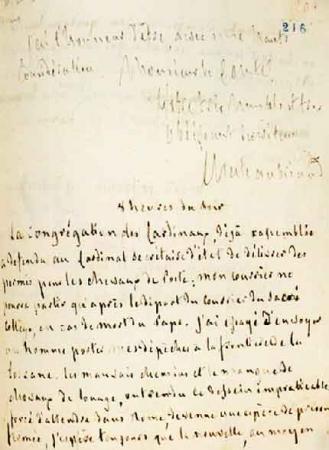 216
J'ai l'honneur d'être, avec une haute
Considération
Monsieur le Comte,
Votre très humble et très
obéissant serviteur
Chateaubriand
8 heures du soir
La congrégation des Cardinaux déjà rassemblée
a défendu au Cardinal secrétaire d'état de délivrer des
permis pour les chevaux de Poste; mon courrier ne
pourra partir qu'après le départ du Courrier du Sacré
Collège, en cas de mort du Pape. J'ai essayé d'envoyer
un homme porter mes dépêches à la frontière de la
Toscane. les mauvais chemins et le manque de
chevaux de louage, ont rendu ce dessein impraticable.
forcé d'attendre dans Rome, devenue une espèce de prison
fermée, j'espère toujours que la nouvelle, au moyen